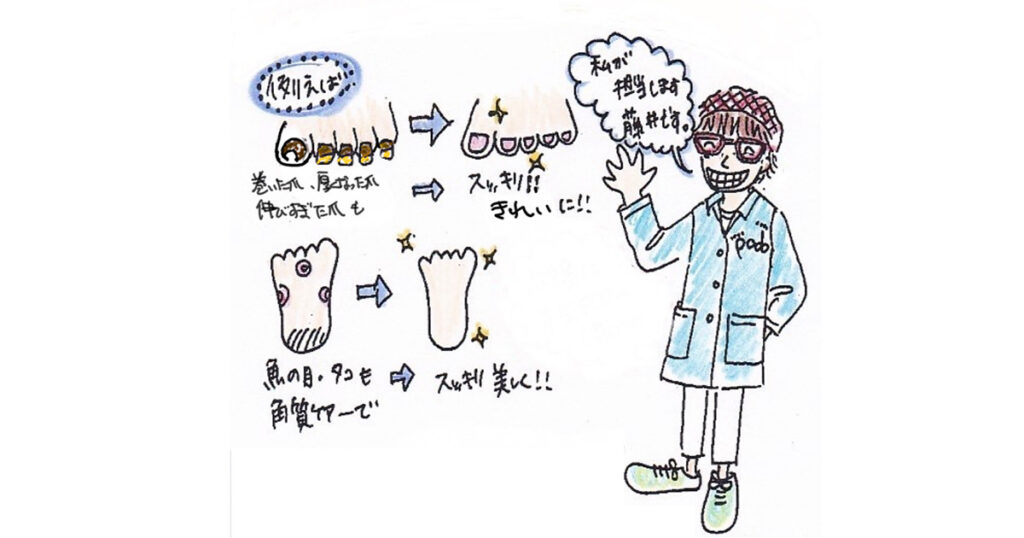 例えば
巻いた爪、厚なった爪
伸びすぎた爪も
スッキリ!!
きれいに!!
魚の目・タコも
角質ケアーで
スッキリ 美しく!!
私が
担当します
藤井です。
podo